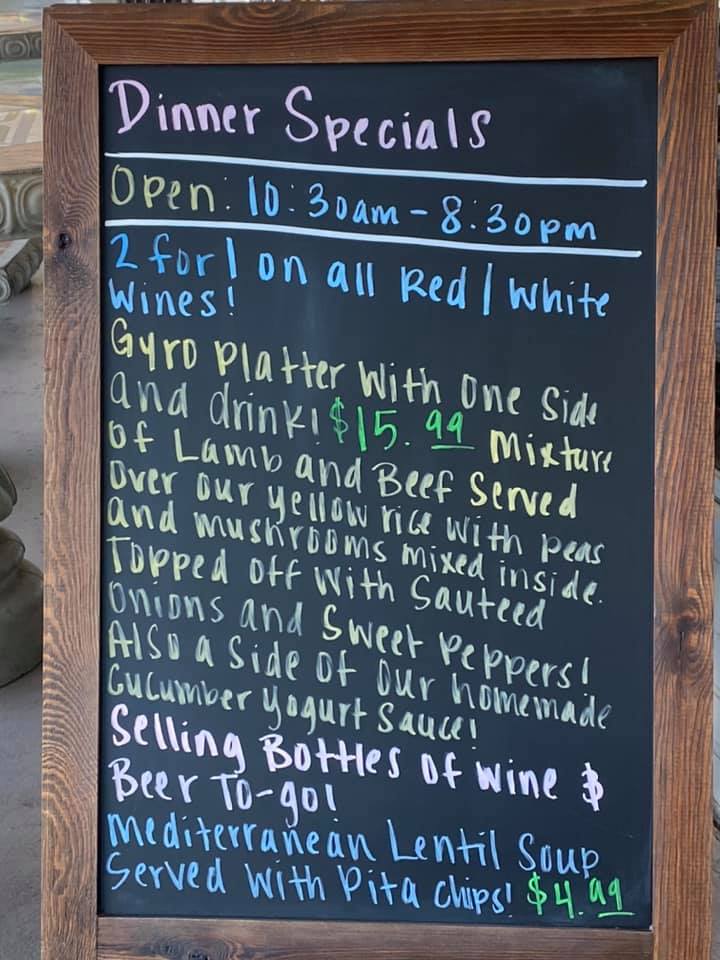 Dinner Specials
Open: 10:30am - 8:30pm
2 for 1 on all Red / White
Wines!
Gyro Platter With One Side
and drink! $15.99 Mixture
of Lamb and Beef Served
Over our yellow rice with peas
and mushrooms mixed inside.
Topped off With Sauteed
Onions and Sweet Peppers!
Also a side of our homemade
Cucumber Yogurt Sauce!
Selling Bottles of Wine &
Beer To-go!
Mediterranean Lentil Soup
Served With Pita Chips! $4.99